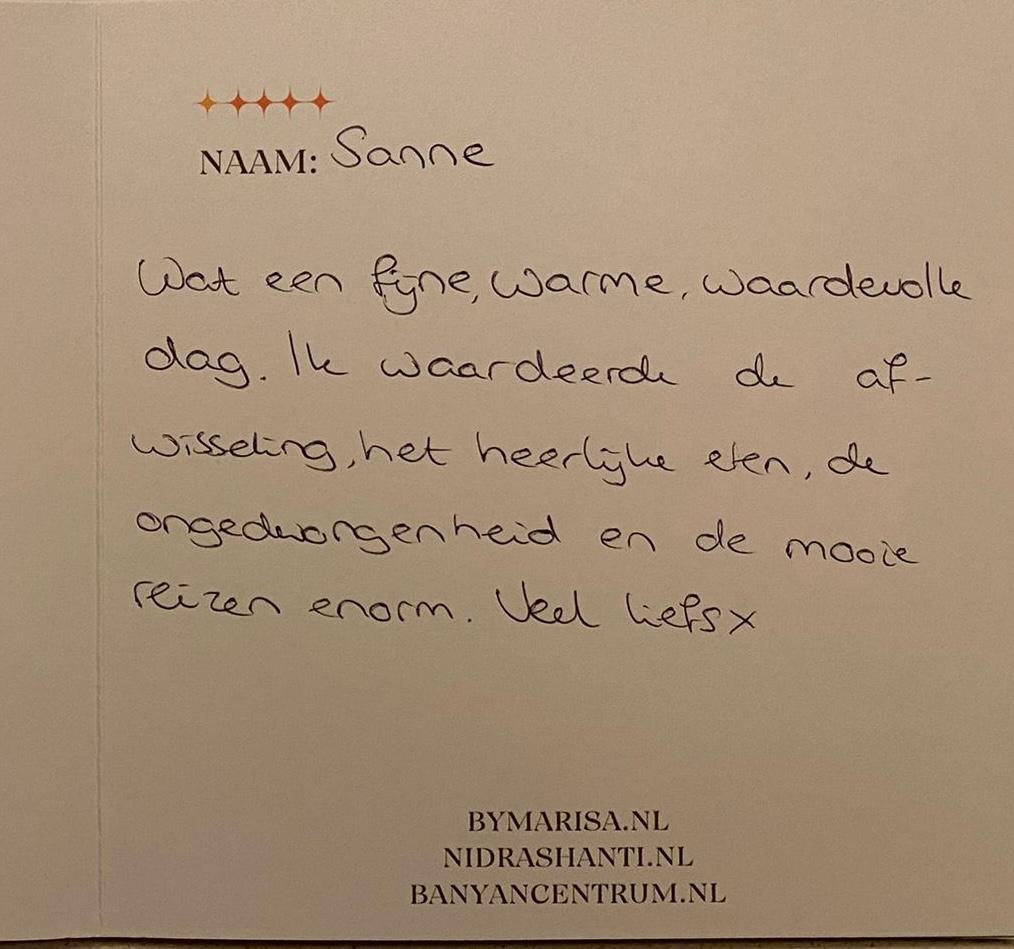 NAAM: Sanne
Wat een fijne, warme, waardevolle
dag. Ik waardeerde de af-
wisseling, het heerlijke eten, de
ongedwongenheid en de mooie
reizen enorm. Veel liefs x
BYMARISA.NL
NIDRASHANTI.NL
BANYANCENTRUM.NL